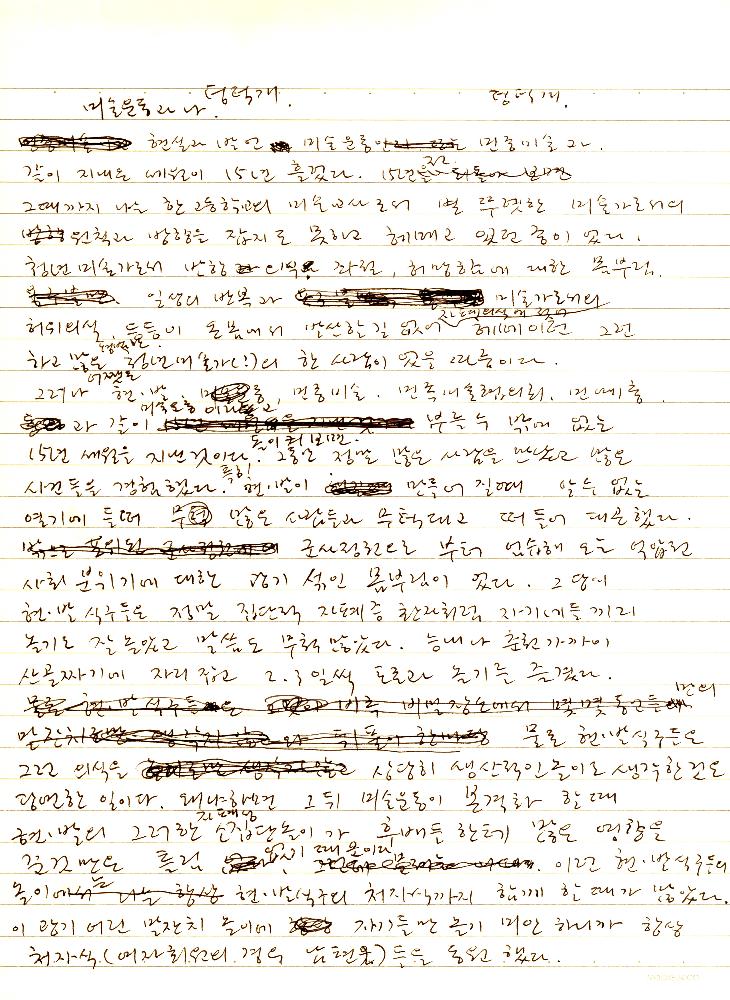 미술운동과 나. 덩덕개.
덩덕개.
현실과 발언 미술운동 민중미술과.
같이 지내온 세월이 15년 흘렀다. 15년 전
그때까지 나는 한 고등학교의 미술교사로서 별 뚜렷한 미술가로서의
원칙과 방향을 잡지도 못하고 헤매고 있던 중이 었다.
청년미술가로서 반항 의식 좌절, 허망함에 대한 몸부림.
일상의 반복과 미술가로서의
허위의식 등등이 온몸에서 발산할길 없어 헤메이던 그런
하고 많은 청년미술가(!)의 한 사람이 었을 따름이다.
그러나 어쨌든 현·발, 민중미술. 민족미술협의회,
과 같이 미술운동이라고 부를 수 밖에 없는
15년 세월을 지낸것이다. 돌이켜 보면. 그동안 정말 많은 사람을 만났고 많은
사건들을 경험했다. 특히 현·발이 만들어 질때 알수 없는
열기에 들떠 많은 사람들과 무턱대고 떠들어 대곤했다.
군사정권으로 부터 연습해 오는 억압된
사회 분위기에 대한 광기 섞인 몸부림이 었다. 그 당시
현·발 식구들은 정말 집단적 자폐증 환자처럼 자기네들끼리
놀기도 잘 놀았고 말씀도 무척 많았다. 능내나 춘천가까이
산골짜기에 자리잡고 2.3일씩 토론과 놀기를 즐겼다.
물론 현·발식구들은
그런 의식을 상당히 생산적인 놀이로 생각한것은
당연한 일이다. 왜냐하면 그 뒤 미술운동이 본격화 할때
현·발의 그러한 자폐성 집단놀이가 후배들 한테 많은 영향을
준것만은 틀림 없기 때문이다. 이런 현·발식구들의
놀이에는 현·발식구의 처자식까지 함께 한 때가 많았다.
이 광기 어린 말잔치 놀이에 자기들만 놀기 미안 하니까 항상
처자식(여자회원의 경우 남편) 들을 동원 했다.